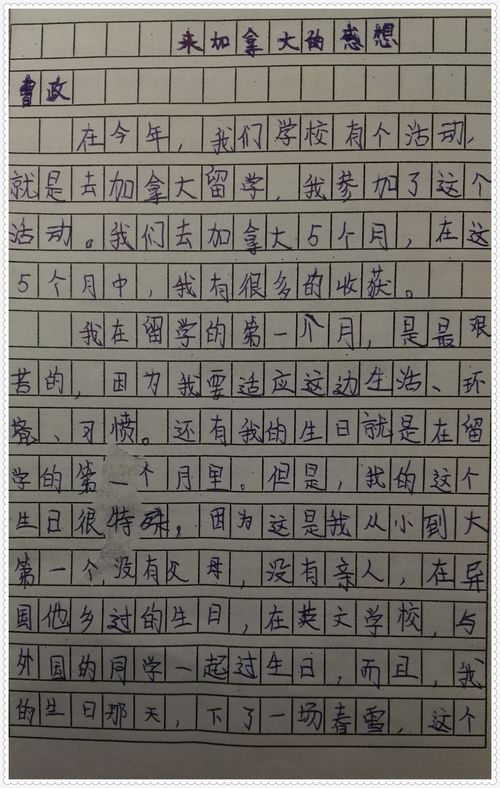 来加拿大的感想
曹政
在今年，我们学校有个活动，
就是去加拿大留学，我参加了这个
活动。我们去加拿大5个月，在这
5个月中，我有很多的收获。
我在留学的第一个月，是最艰
苦的，因为我要适应这边生活、环
境、习愤。还有我的生日就是在留
学的第一个月里。但是，我的这个
生日很特殊，因为这是我从小到大
第一个没有父母，没有亲人，在异
国他乡过的生日，在英文学校，与
外国的同学一起过生日，而且，我
的生日那天，下了一场春雪，这个